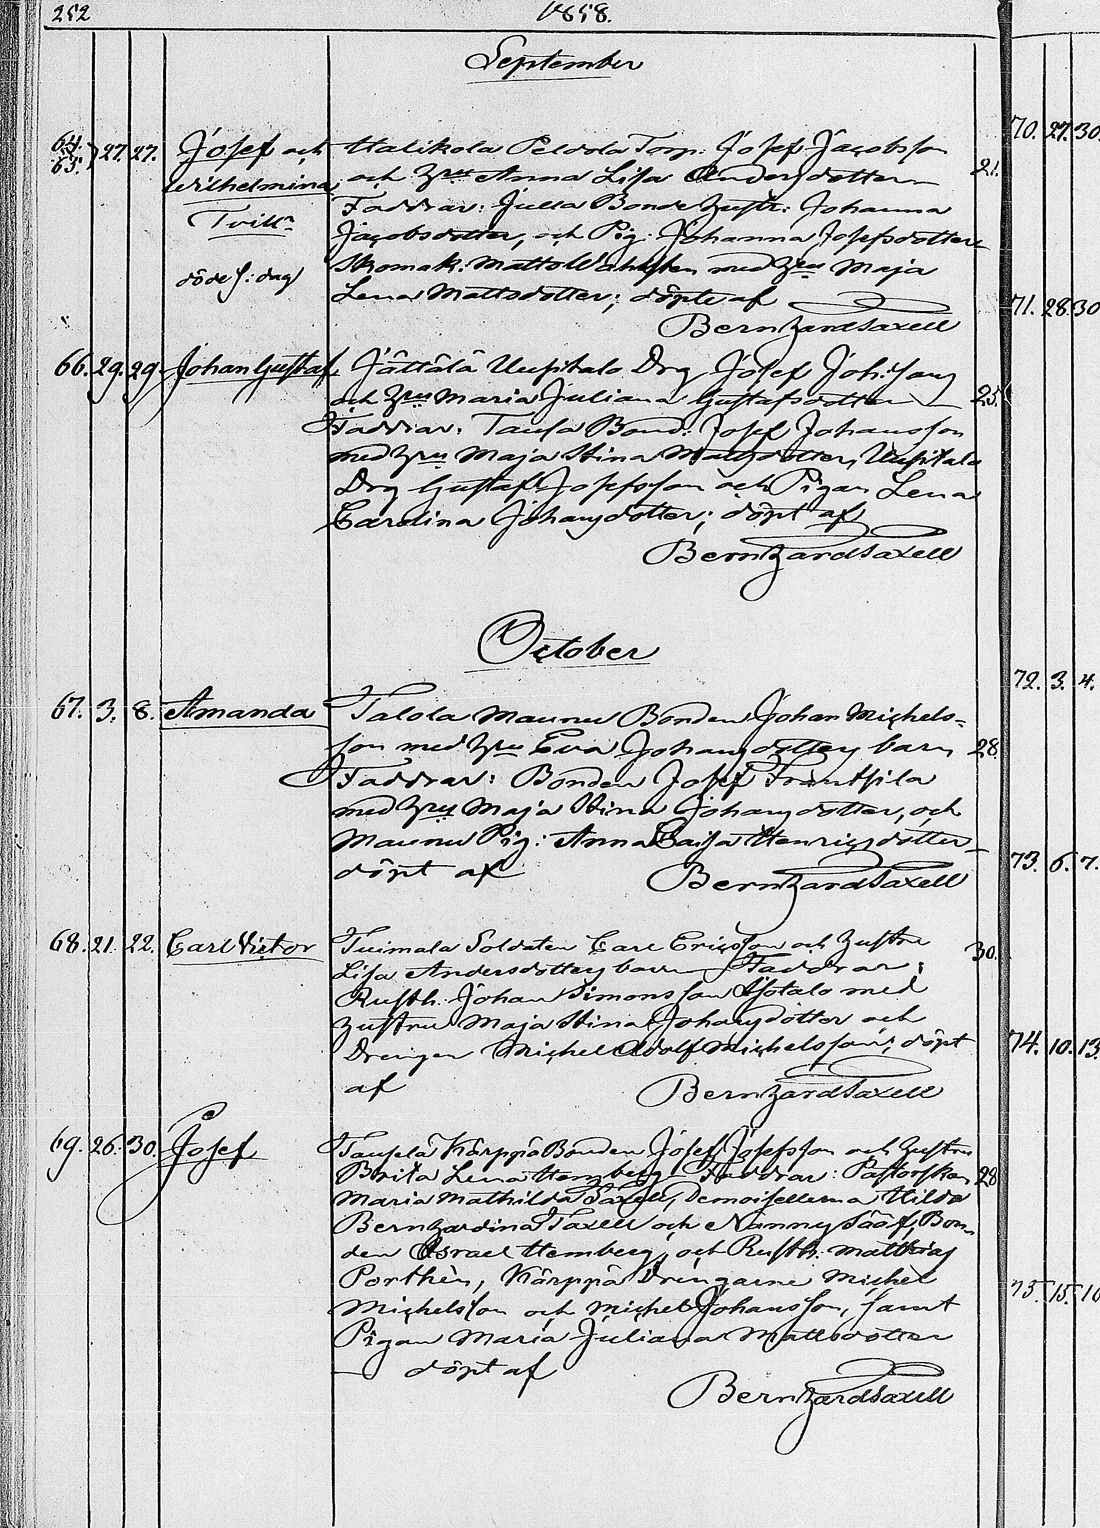 252
1858.
September
64. 65. 27. 27. Josef och Wilhelmina Halikola Peldola Torp. Josef Jacobsson
och hru Anna Lisa Andersdotter 21.
Tvill:r Faddrar: Julla Bonde hustr: Johanna
Jacobsdotter, och Pig. Johanna Josefsdotter
döde s: dag Skomak: Matts med hru Maja
Lena Mattsdotter; döpte af
Bernhard Taxell
66. 29. 29. Johan Gustaf Jättälä Uusitalo Drg Josef Johansson
och hru Maria Juliana Gustafsdotter 25.
Faddrar: Bond: Josef Johansson
med hru Maja Stina Mattsdotter, Uusitalo
Drg Gustaf Josefsson och Pigan Lena
Carolina Johansdotter; döpt af
Bernhard Taxell
October
67. 3. 8. Amanda Talola Maunu Bonden Johan Michels-
son med hru Eva Johansdotters barn 28.
Faddrar: Bonden Josef Frantsila
med hru Maja Stina Johansdotter, och
Maunu Pig: Anna Caisa Henricsdotter
döpt af Bernhard Taxell
68. 21. 22. Carl Victor Tuimala Soldaten Carl Ericsson och hustru
Lisa Andersdotters barn Faddrar: 30.
Rusth. Johan Simonsson Isotalo med
hustru Maja Stina Johansdotter och
Drengen Michel Adolf Michelsson; döpt
af Bernhard Taxell
69. 26. 30. Josef Kärppä Bonden Josef Josefsson och hustru
Brita Lena Hemberg Faddrar: Pastorskan 28
Maria Mathilda Taxell, Demoisellerna Hilda
Bernhardina Taxell och Nanny Bon-
den Israel Hemberg, och Rusth: Matthias
Porthén, Kärppä Drengarne Michel
Michelsson och Michel Johansson, samt
Pigan Maria Juliana Mattsdotter
döpt af
Bernhard Taxell
70. 27. 30
71. 28. 30
72. 3. 4.
73. 6. 7.
74. 10. 13.